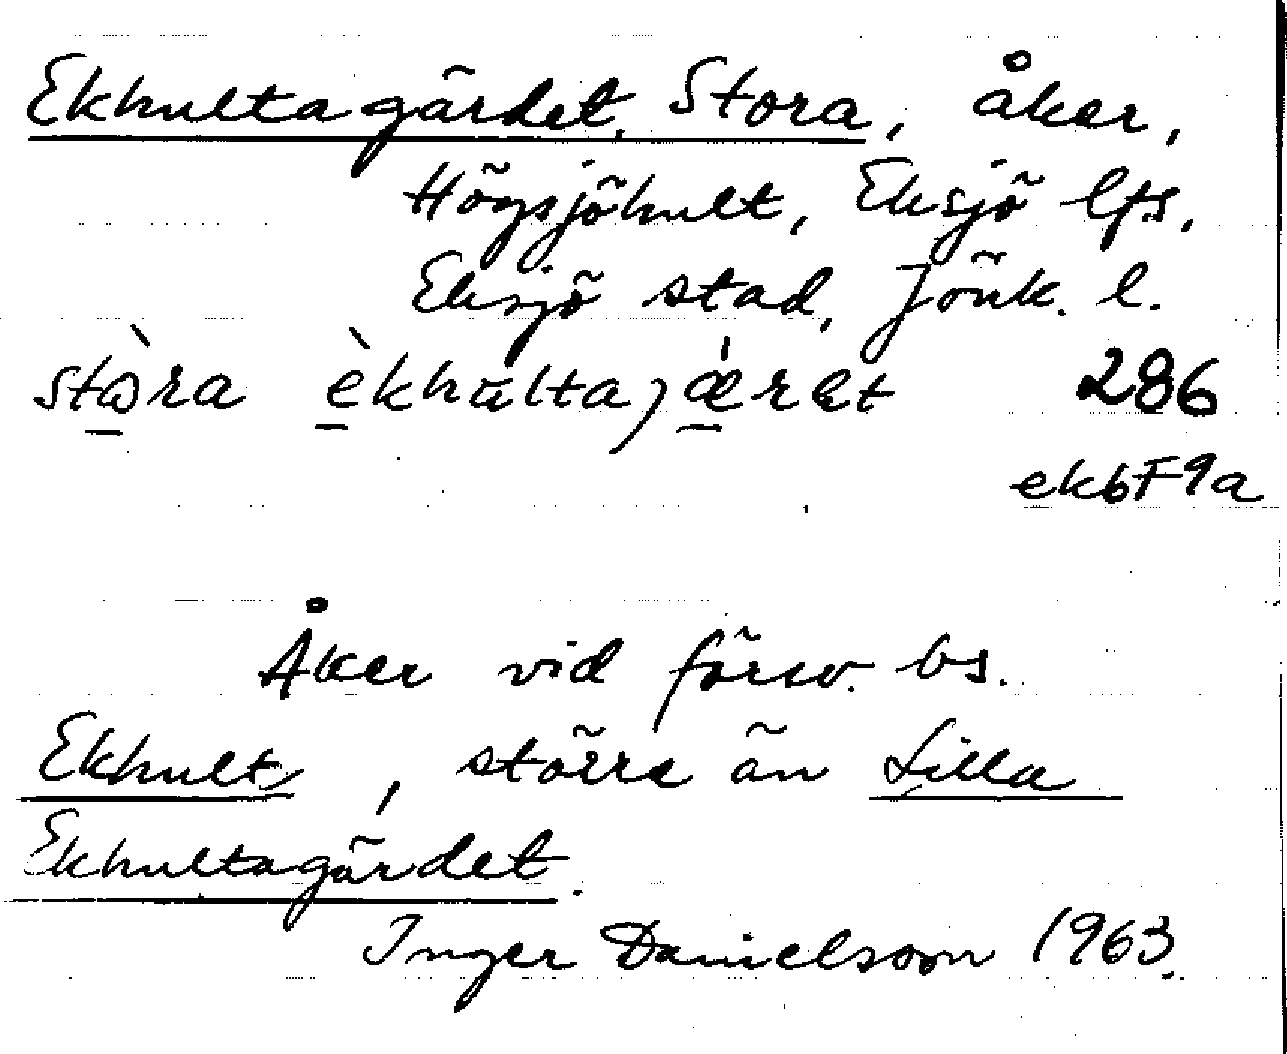 Ekhultagärdet, Stora, åker,
Högsjöhult, Eksjö lfs.
Eksjö stad, Jönk. l.
286
ekbF9a
Åker vid försv. bs.
Ekhult, större än Lilla
Ekhultagärdet.
Inger Danielsson 1963.